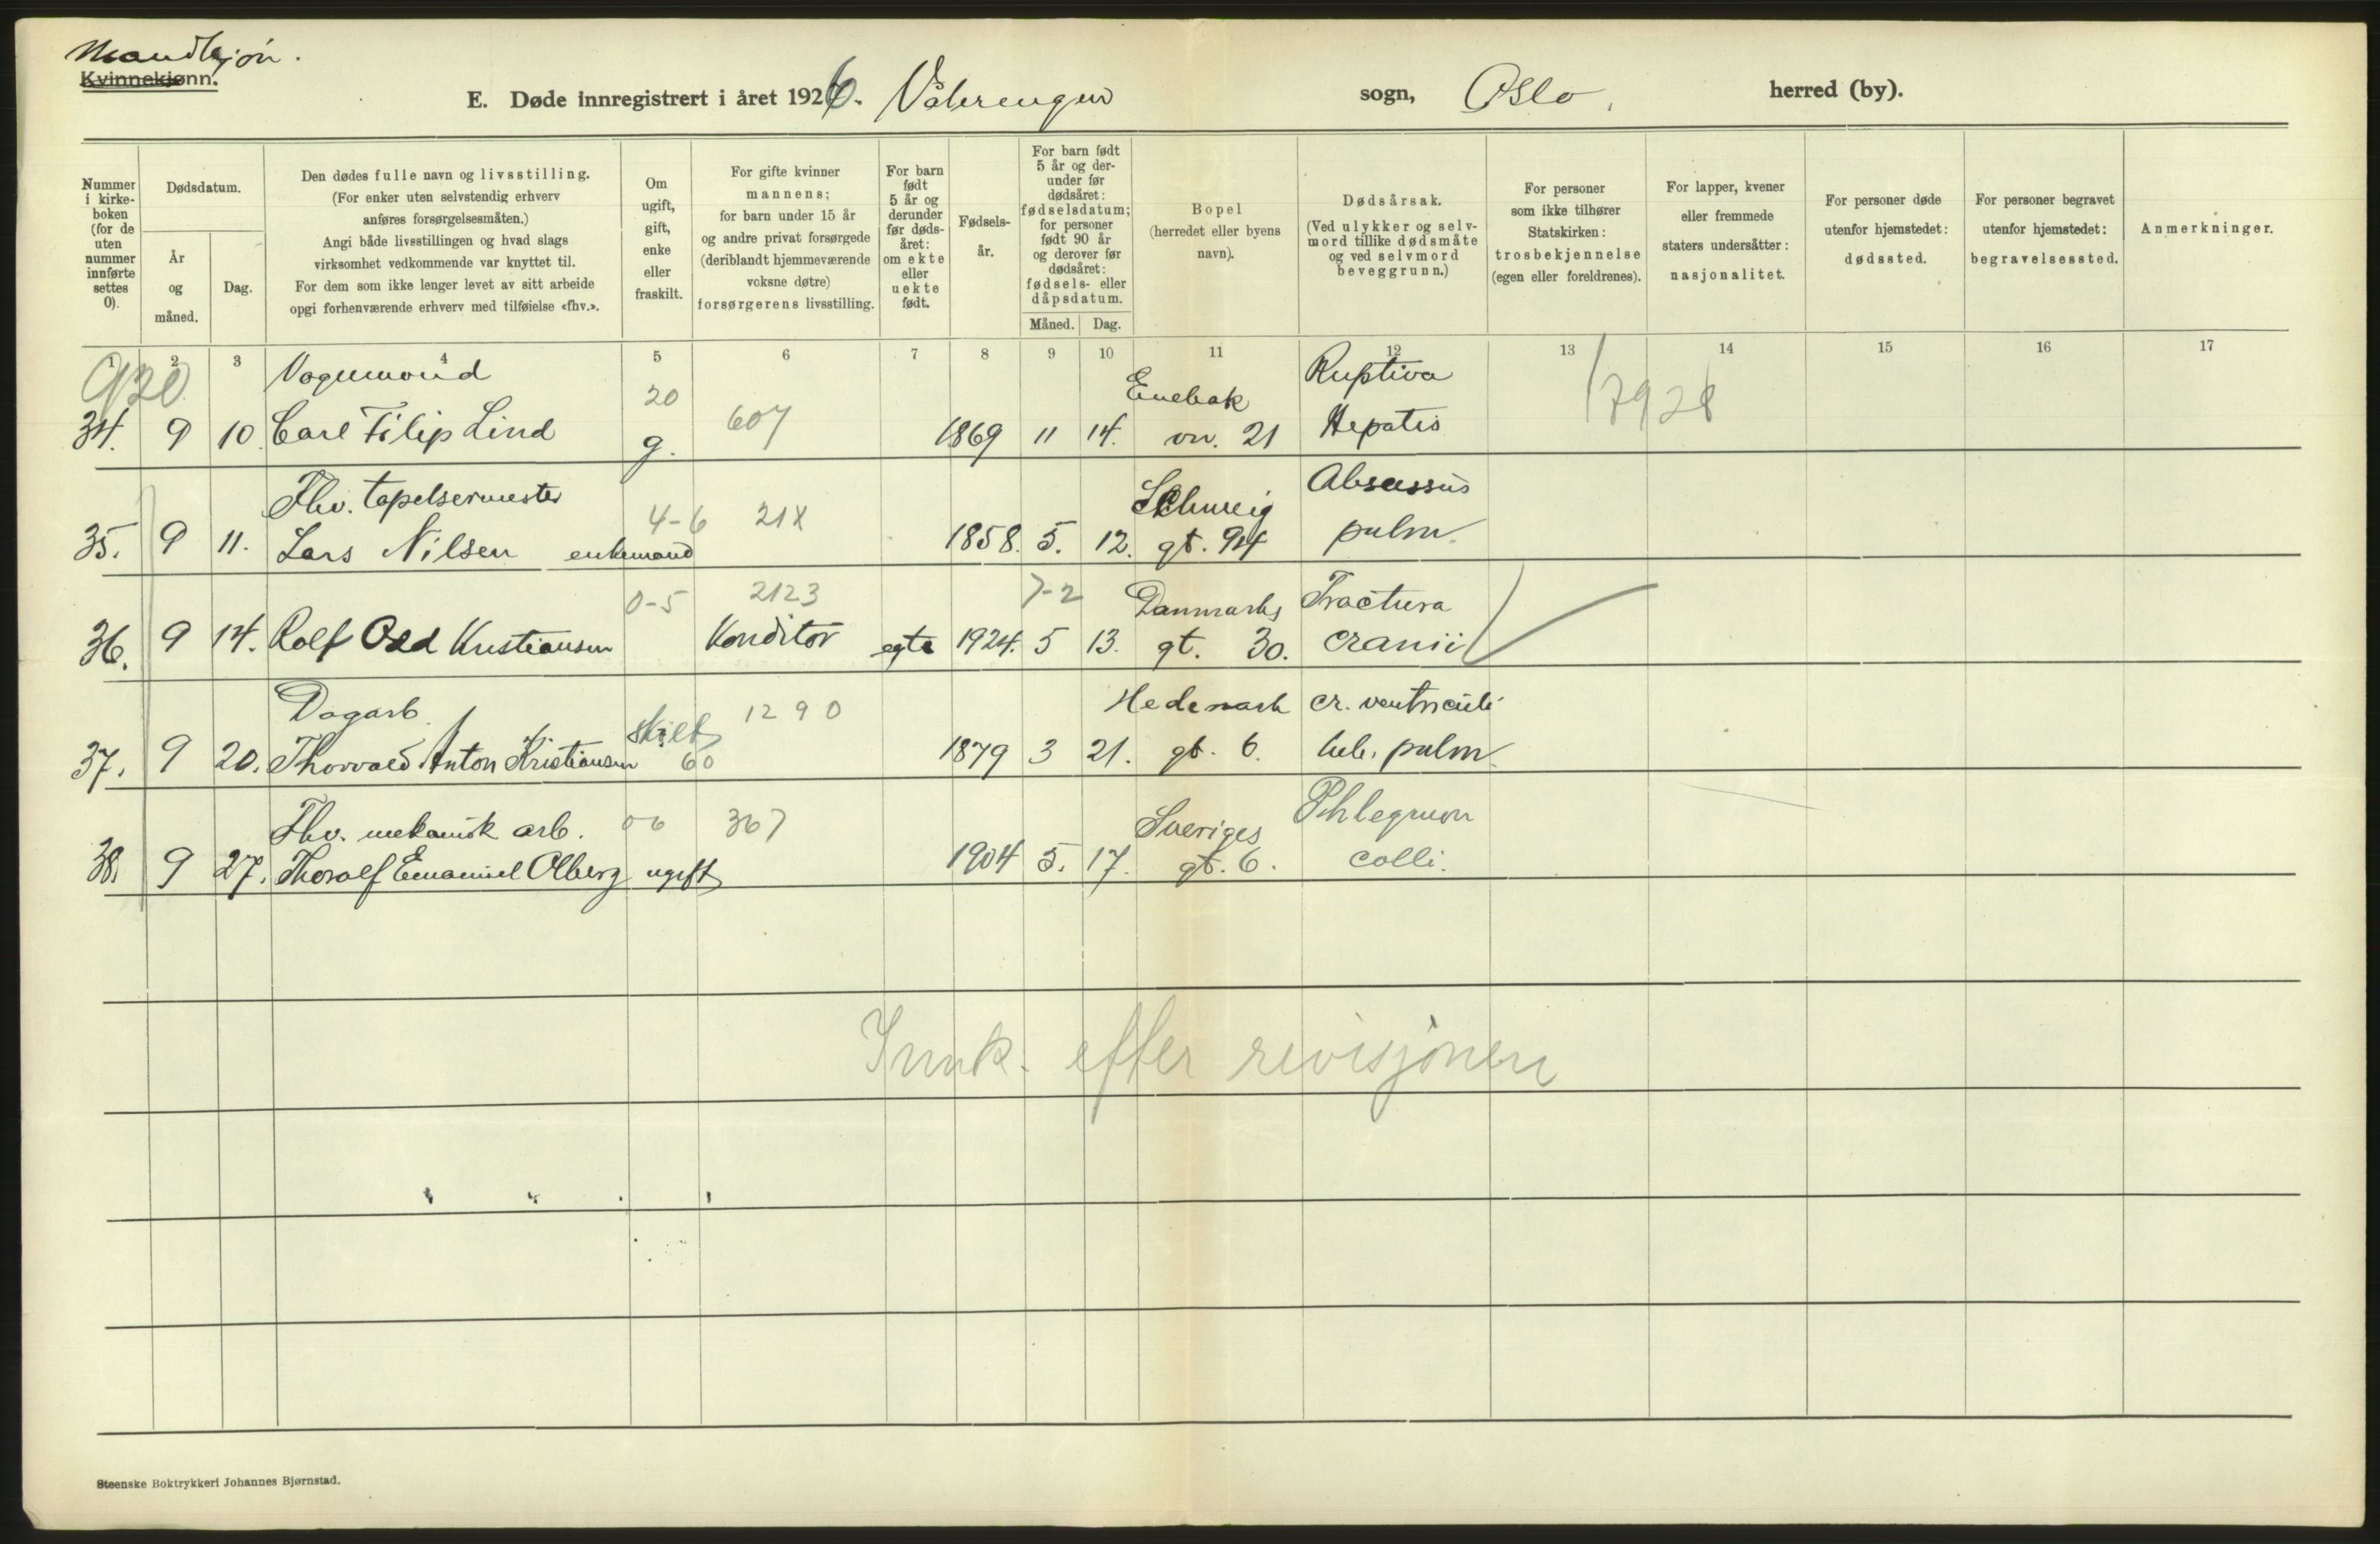 Mandkjøn.
Kvinnekjønn.
E. Døde innregistrert i året 1926. Vålerengen sogn, Oslo, herred (by).
Nummer i kirke-boken (for de uten nummer innførte settes 0).
Dødsdatum.
År og måned.
Dag.
Den dødes fulle navn og livsstilling.
(For enker uten selvstendig erhverv
anføres forsørgelsesmåten.)
Angi både livsstillingen og hvad slags
virksomhet vedkommende var knyttet til.
For dem som ikke lenger levet av sitt arbeide
opgi forhenværende erhverv med tilføielse «fhv.».
Om ugift, gift, enke eller fraskilt.
For gifte kvinner
mannens;
for barn under 15 år
og andre privat forsørgede
(deriblandt hjemmeværende
voksne døtre)
forsørgerens livsstilling.
For barn født 5 år og derunder før døds-året: om ekte eller uekte født.
Fødsels-år.
For barn født
5 år og der-
under før
dødsåret:
fødselsdatum;
for personer
født 90 år
og derover før
dødsåret:
fødsels- eller
dåpsdatum.
Måned. Dag.
Bopel
(herredet eller byens
navn).
Dødsårsak.
(Ved ulykker og selv-
mord tillike dødsmåte
og ved selvmord
beveggrunn.)
For personer
som ikke tilhører
Statskirken:
trosbekjennelse
(egen eller foreldrenes).
For lapper, kvener
eller fremmede
staters undersåtter:
nasjonalitet.
For personer døde
utenfor hjemstedet:
dødssted.
For personer begravet
utenfor hjemstedet:
begravelsessted.
Anmerkninger.
1 2 3 4 5 6 7 8 9 10 11 12 13 14 15 16 17
920 Vognmand 20 607 Enebak Ruptura 7928
34. 9 10. Carl Filip Lind g. 1869 11 14. vn. 21 Hepatis
Fhv. tapetsermester 4-6 21X Schweig Abscessus
35. 9 11. Lars Nilsen enkemand 1858. 5. 12. gt. 94 pulm.
0-5 2123 7-2 Danmarks Fractura
36. 9 14. Rolf Odd Kristiansen Konditor egte 1924. 5 13. gt. 30. cranii
Dagarb. skilt 1290 Hedemark cr. ventriculi
37. 9 20. Thorvald Anton Kristiansen 60 1879 3 21. gt. 6. tub. pulm.
Fhv. mekanisk arb. 06 367 Sveriges Phlegmon
38. 9 27. Thoralf Emanuel Olberg ugift 1904 5. 17. gt. 6. colli.
Innk. efter revisjonen
Steenske Boktrykkeri Johannes Bjørnstad.